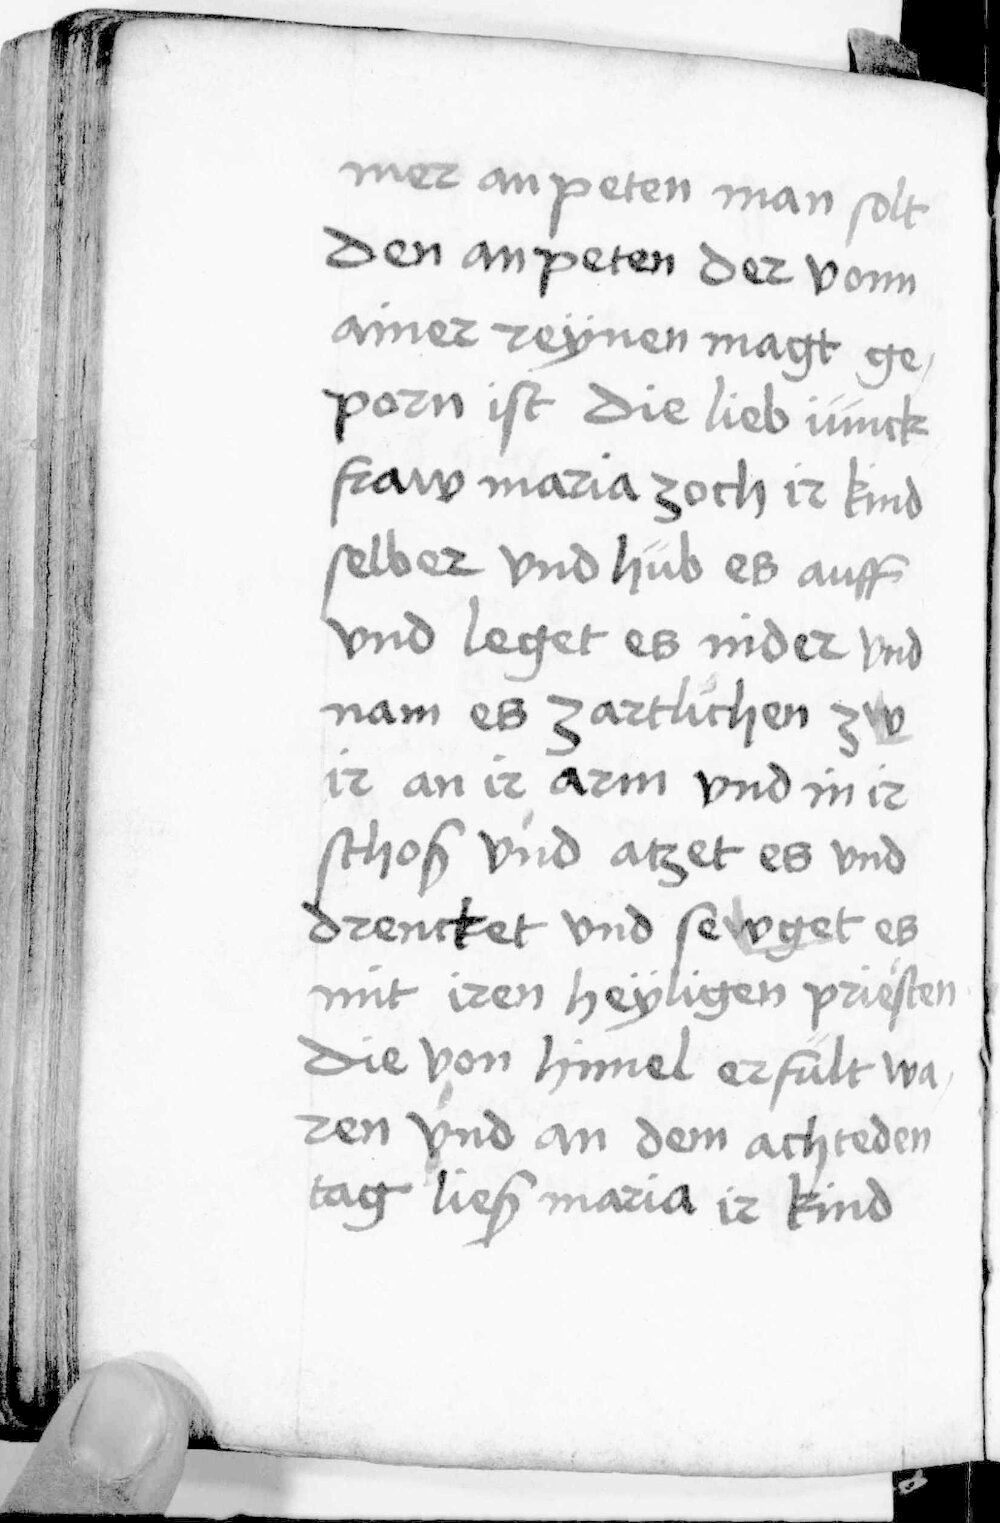 mer an peten man solt
den an peten der vonn
ainer reÿnen magt ge/
porn ist die lieb iünck
fraw maria zoch ir kind
selber vnd hüb es auff
vnd leget es nider vnd
nam es zartlichen zw
ir an ir arm vnd in ir
schoß vnd atzet es vnd
drencket vnd sewget es
mit iren heÿligen priesten
die von himel erfült wa/
ren vnd an dem achteden
tag ließ maria ir kind